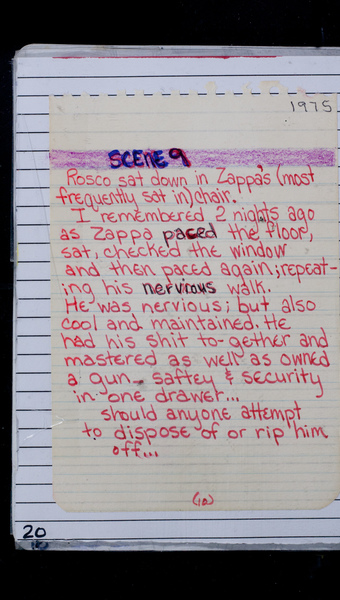 1975
SCENE 9
Rosco sat down in Zappa's (most
frequently sat in) chair.
I remembered 2 nights ago
as Zappa paced the floor,
sat, checked the window
and then paced again; repeat-
ing his nervious walk.
He was nervious; but also
cool and maintained. He
had his shit to-gether and
mastered as well as owned
a gun - saftey & security
in one drawer...
should anyone attempt
to dispose of or rip him
off...
(10)
20